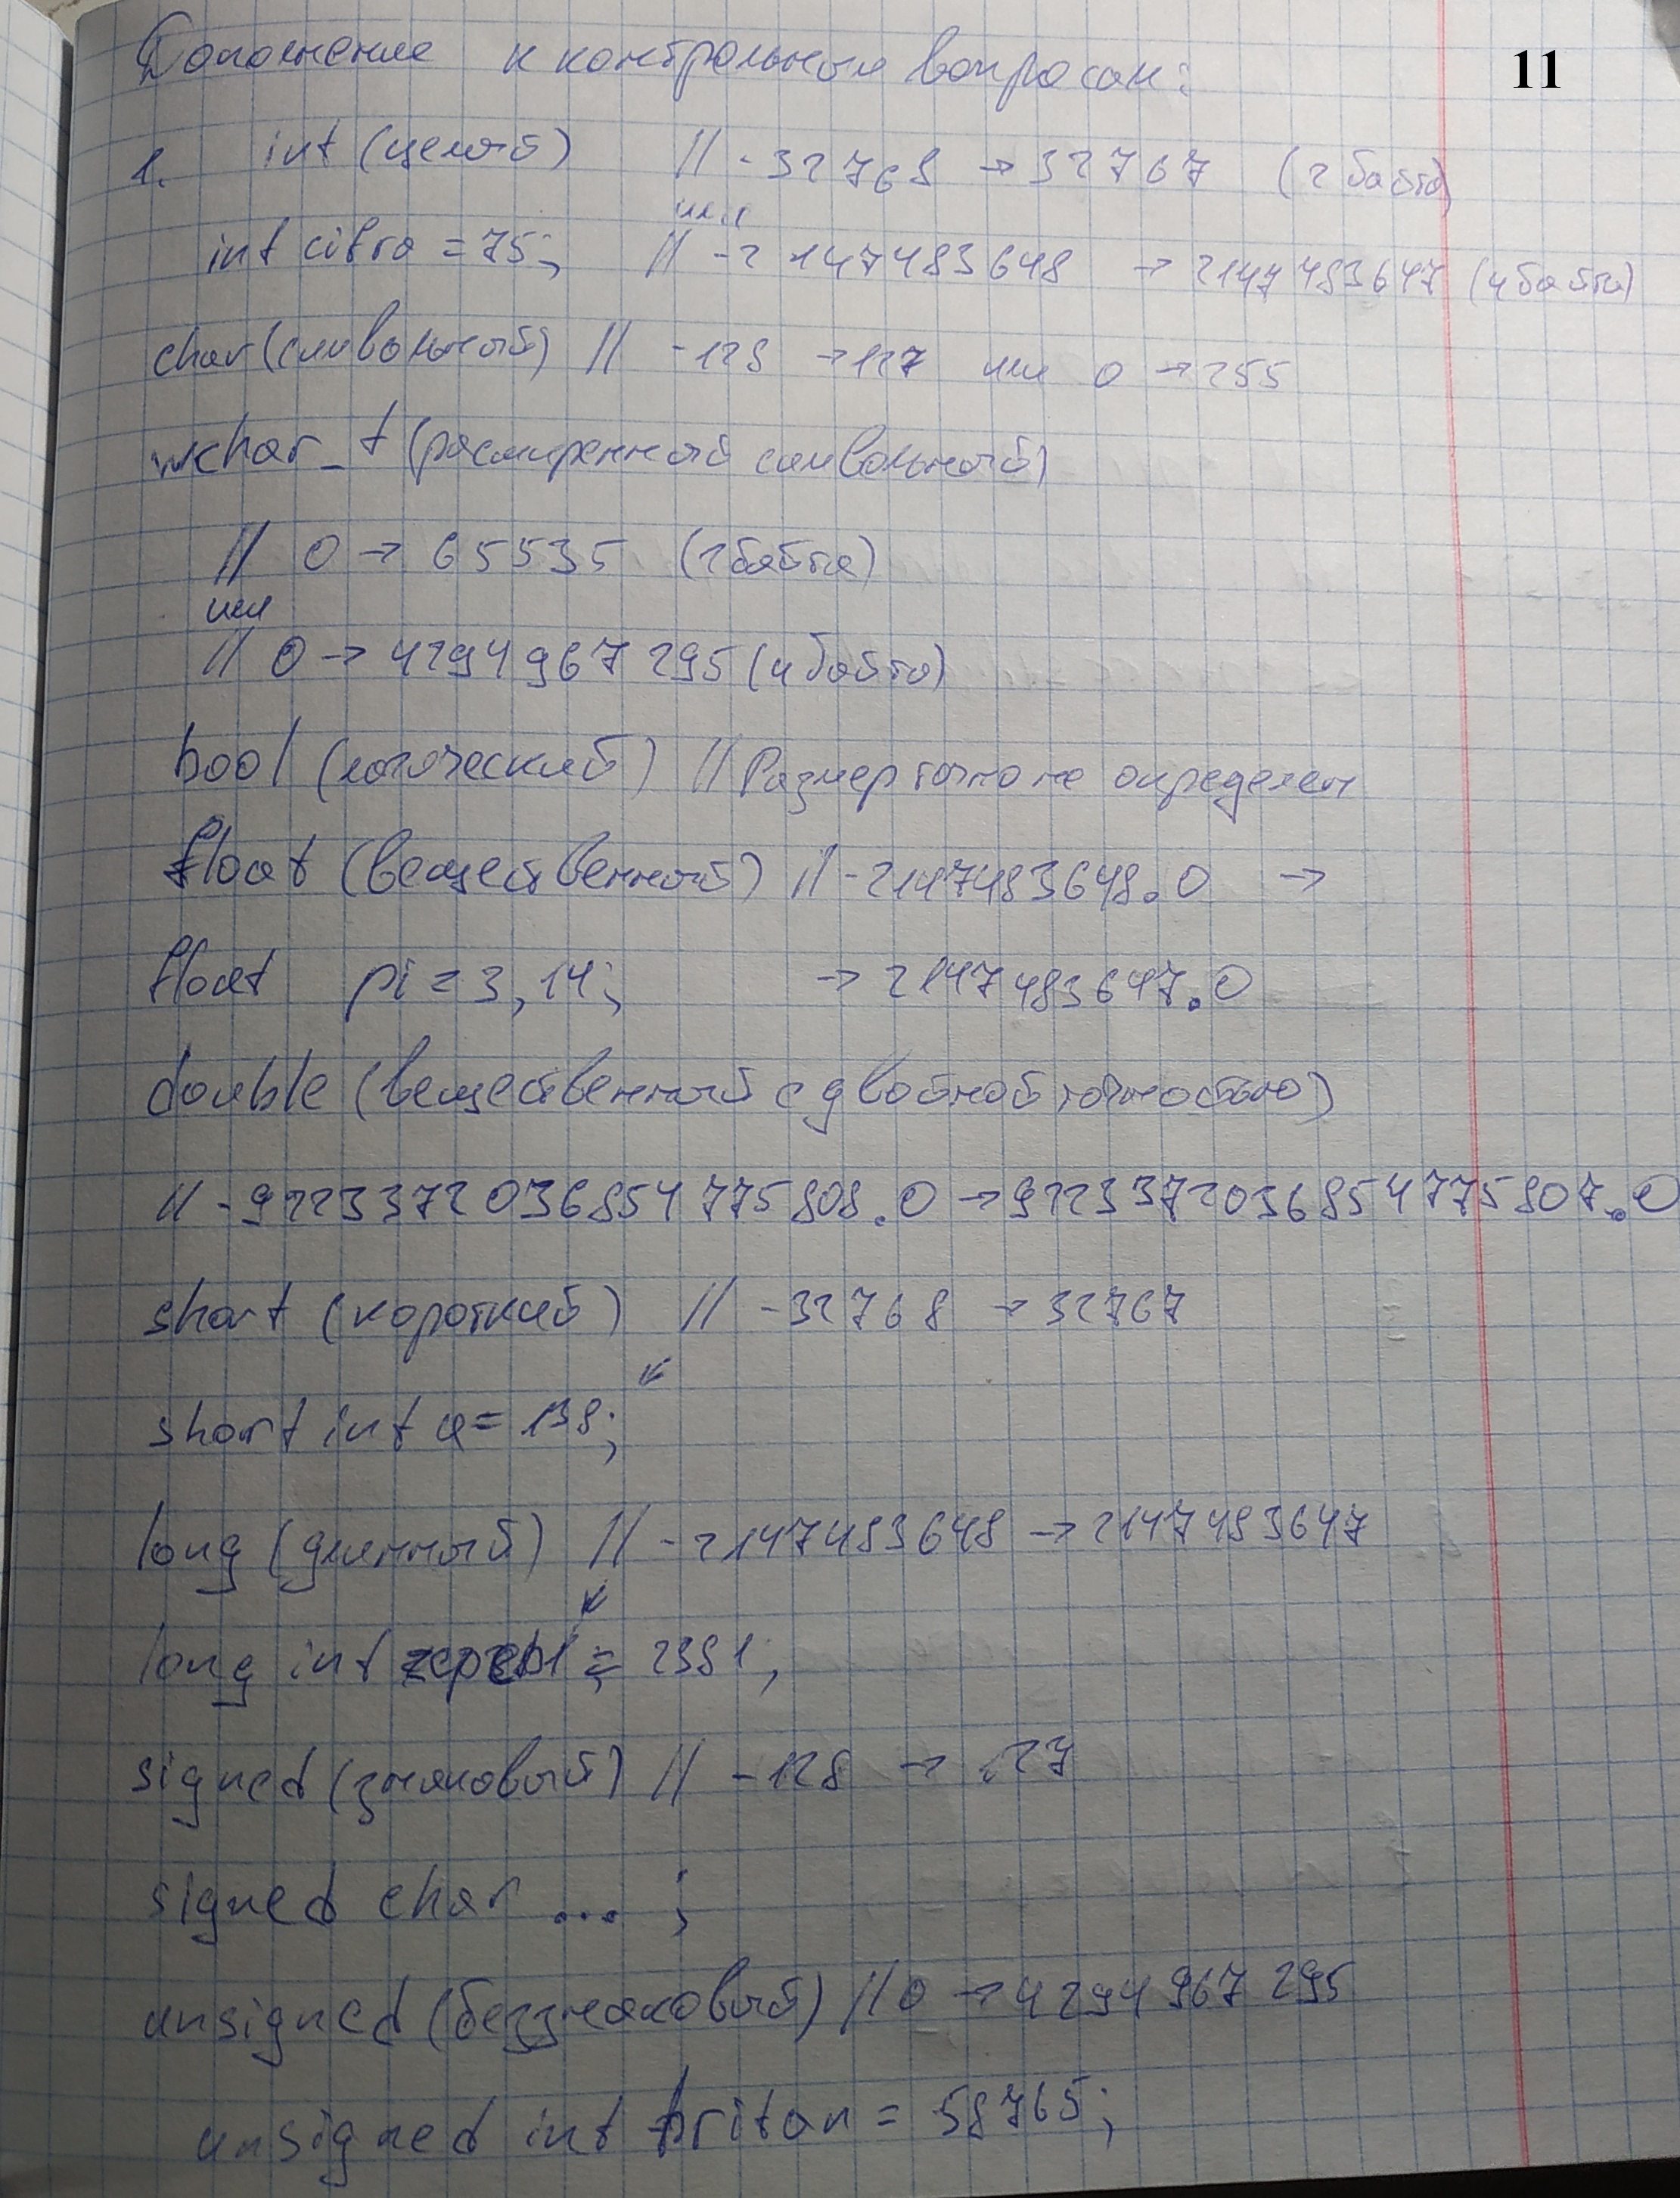 Дополнение к контрольным вопросам:
11
1. int (целый) // -32768 → 32767 (2 байта)
или
int cifra = 75; // -2147483648 → 2147483647 (4 байта)
char (символьный) // -128 → 127 или 0 → 255
wchar_t (расширенный символьный)
// 0 → 65535 (2 байта)
или
// 0 → 4294967295 (4 байта)
bool (логический) // Размер точно не определен
float (вещественный) // -2147483648.0 →
float pi = 3,14; → 2147483647.0
double (вещественный с двойной точностью)
// -9223372036854775808.0 → 9223372036854775807.0
short (короткий) // -32768 → 32767
short int a = 138;
long (длинный) // -2147483648 → 2147483647
long int = 2381;
signed (знаковый) // -128 → 127
signed char ... ;
unsigned (беззнаковый) // 0 → 4294967295
unsigned int britan = 58765;